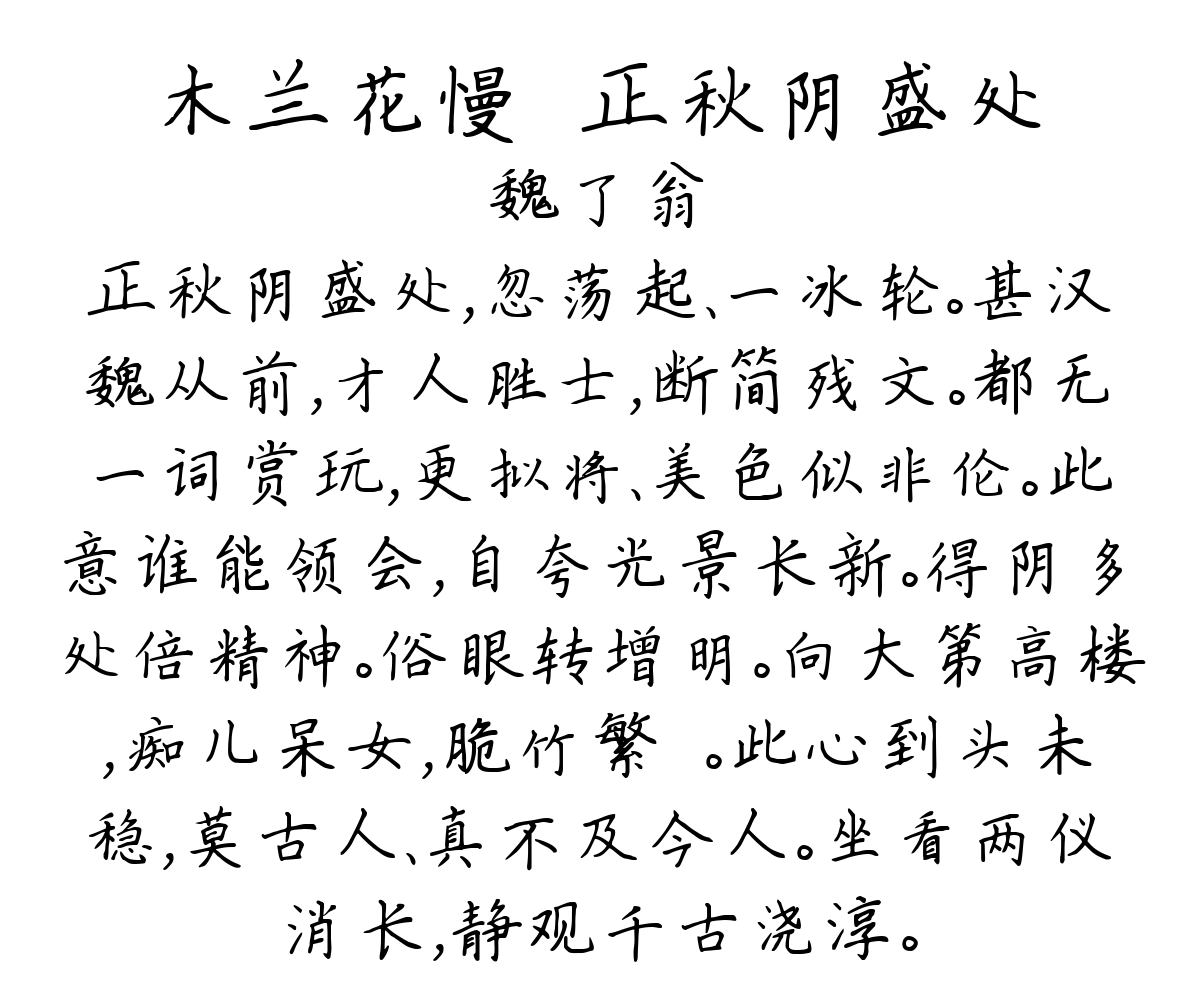 木兰花慢 正秋阴盛处
魏了翁
正秋阴盛处,忽荡起、一冰轮。甚汉
魏从前,才人胜士,断简残文。都无
一词赏玩,更拟将、美色似非伦。此
意谁能领会,自夸光景长新。得阴多
处倍精神。俗眼转增明。向大第高楼
,痴儿呆女,脆竹繁 。此心到头未
稳,莫古人、真不及今人。坐看两仪
消长,静观千古浇淳。